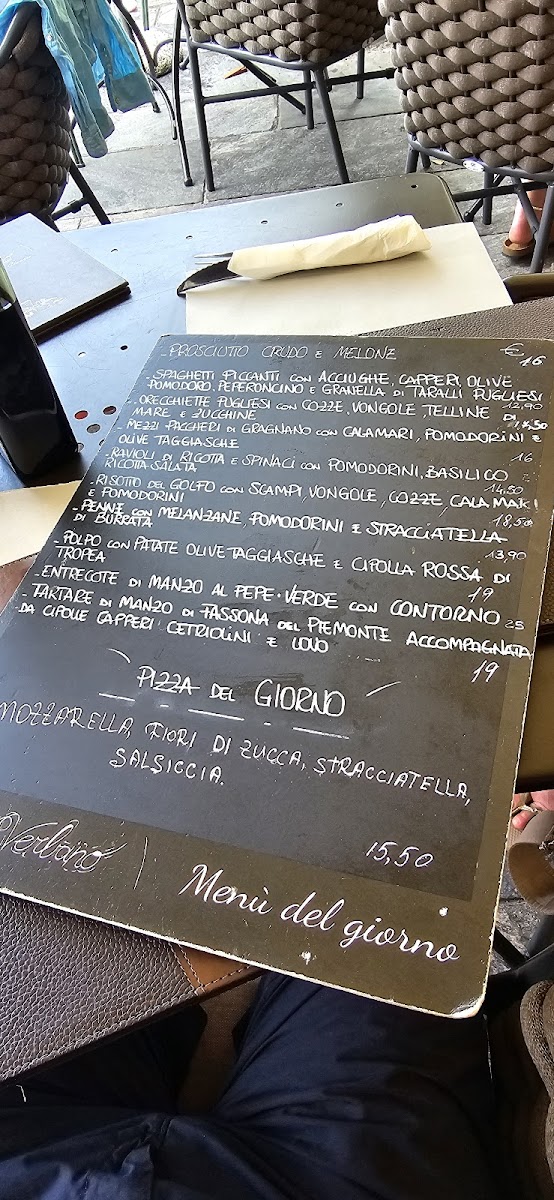 - PROSCIUTTO CRUDO E MELONE € 16
- SPAGHETTI PICCANTI CON ACCIUGHE, CAPPERI, OLIVE
POMODORO, PEPERONCINO E GRANELLA DI TARALLI PUGLIESI
12,90
- ORECCHIETTE PUGLIESI CON COZZE, VONGOLE, TELLINE DI
MARE E ZUCCHINE
- MEZZI PACCHERI DI GRAGNANO CON CALAMARI, POMODORINI E
OLIVE TAGGIASCHE 16
- RAVIOLI DI RICOTTA E SPINACI CON POMODORINI, BASILICO E
RICOTTA SALATA 14,50
- RISOTTO DEL GOLFO CON SCAMPI, VONGOLE, COZZE, CALAMARI
E POMODORINI 18,50
- PENNE CON MELANZANE, POMODORINI E STRACCIATELLA
DI BURRATA 13,90
- POLPO CON PATATE OLIVE TAGGIASCHE E CIPOLLA ROSSA DI
TROPEA 19
- ENTRECOTE DI MANZO AL PEPE VERDE CON CONTORNO 25
- TARTARE DI MANZO DI FASSONA DEL PIEMONTE ACCOMPAGNATA
DA CIPOLLE CAPPERI CETRIOLINI E UOVO 19
PIZZA DEL GIORNO
MOZZARELLA, FIORI DI ZUCCA, STRACCIATELLA,
SALSICCIA.
15,50
Verbano
Menù del giorno